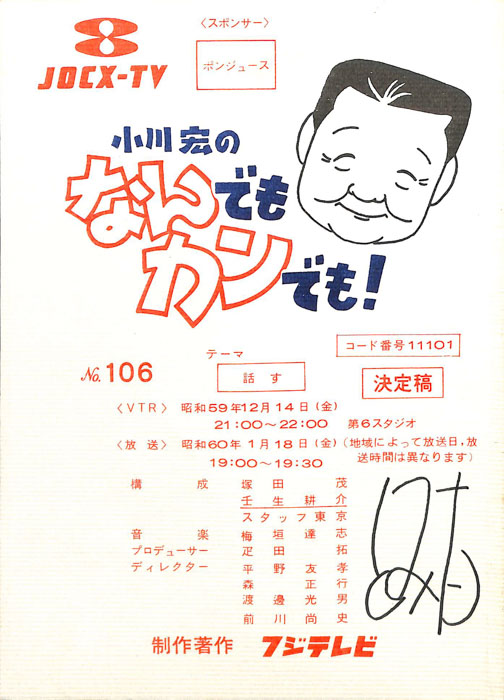 〈スポンサー〉
ポンジュース
JOCX-TV
小川宏の
なんでも
カンでも!
コード番号11101
テーマ
No.106
話す
決定稿
〈VTR〉 昭和59年12月14日(金)
21:00~22:00 第6スタジオ
〈放送〉 昭和60年1月18日(金)(地域によって放送日,放
19:00~19:30 送時間は異なります)
構成 塚田茂
壬生耕介
スタッフ東京
音楽 梅垣達志
プロデューサー 疋田拓
ディレクター 平野友孝
森正行
渡邊光男
前川尚史
制作著作 フジテレビ